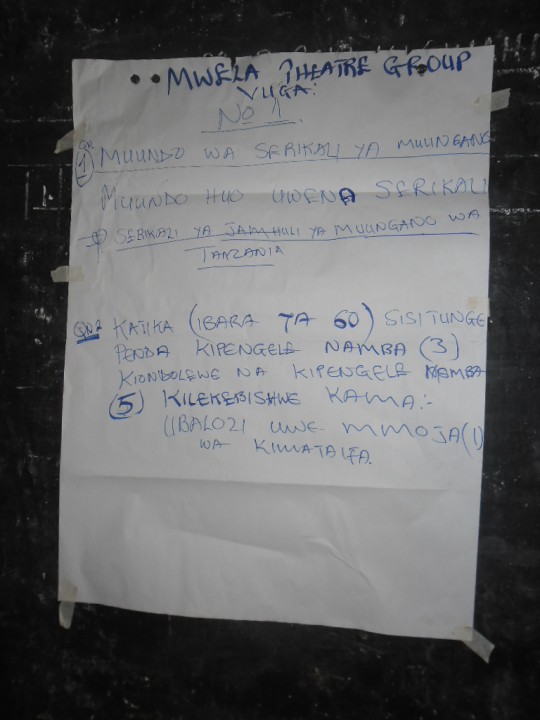 MWELA THEATRE GROUP
VUGA:
No 1.
QN
1 MUUNDO WA SERIKALI YA MUUNGANO
MUUNDO HUO UWE NA SERIKALI
SERIKALI YA JAMHULI YA MUUNGANO WA
TANZANIA
QN2 KATIKA (IBARA YA 60) SISI TUNGE
PENDA KIPENGELE NAMBA (3)
KIONDOLEWE NA KIPENGELE NAMBA
(5) KILEKEBISHWE KAMA:-
UBALOZI UWE MMOJA (1)
WA KIMATAIFA.